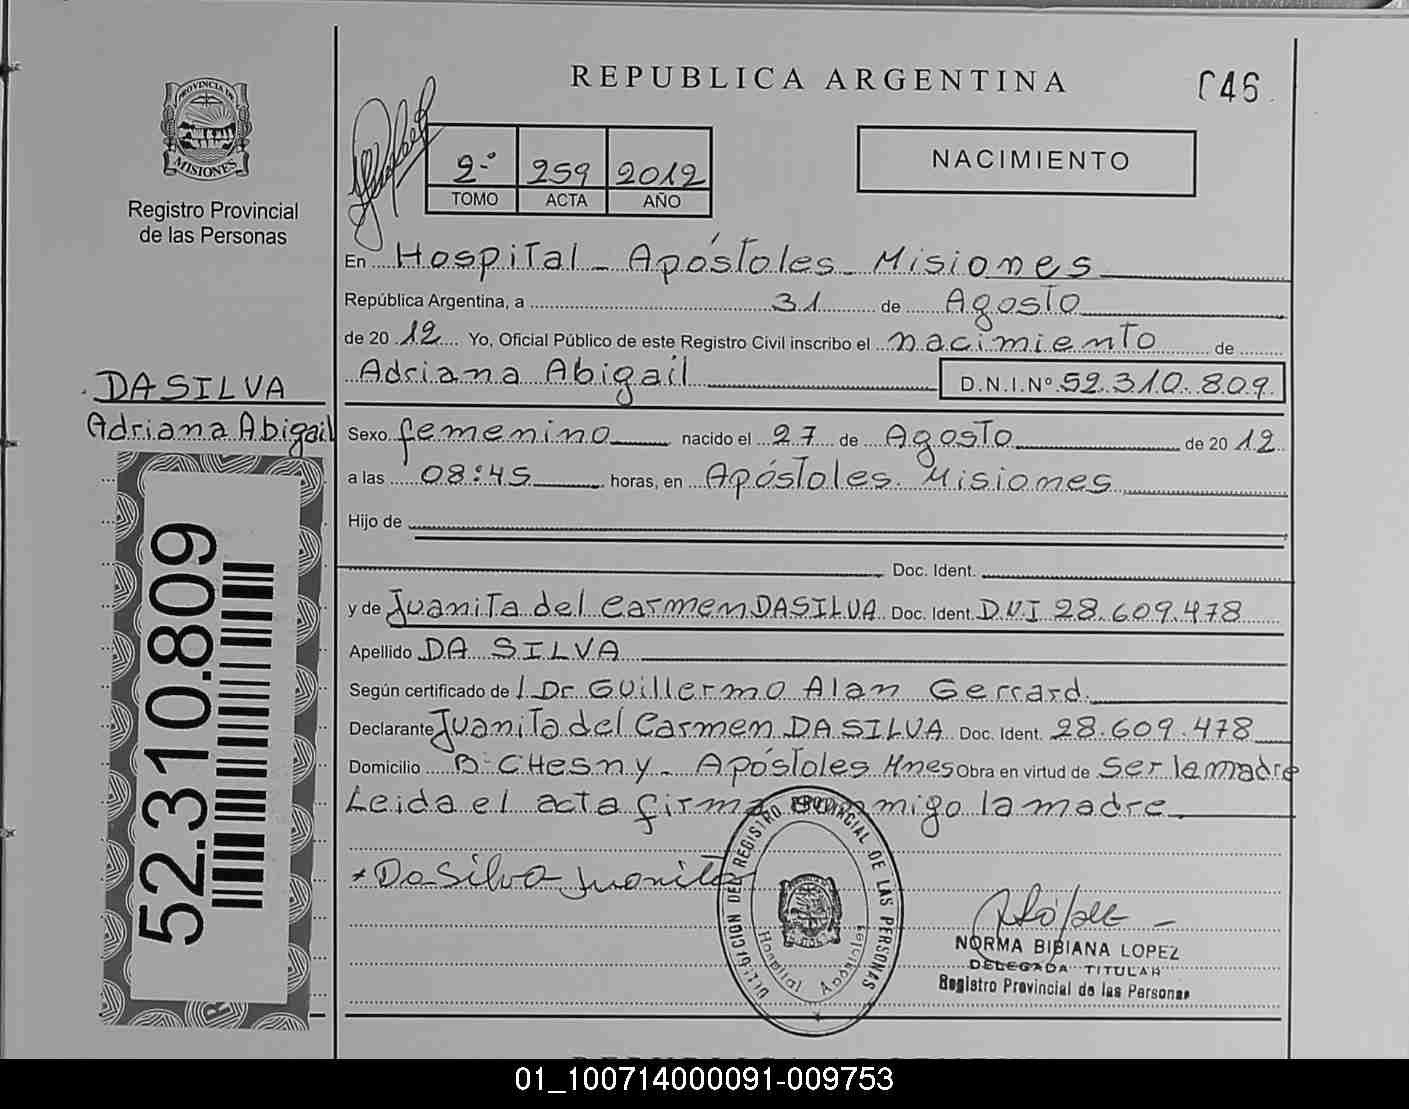 REPUBLICA ARGENTINA
046
PROVINCIA DE
MISIONES
Registro Provincial
de las Personas
2º 259 2012
TOMO ACTA AÑO
NACIMIENTO
En Hospital - Apóstoles - Misiones
República Argentina, a 31 de Agosto
de 2012 Yo, Oficial Público de este Registro Civil inscribo el nacimiento de
Adriana Abigail D.N.I.Nº 52.310.809
DA SILVA
Adriana Abigail
Sexo femenino nacido el 27 de Agosto de 2012
a las 08:45 horas, en Apóstoles. Misiones
Hijo de
Doc. Ident.
y de Juanita del Carmen DA SILVA Doc. Ident. D.N.I 28.609.478
Apellido DA SILVA
Según certificado de Dr Guillermo Alan Gerrard
Declarante Juanita del Carmen DA SILVA Doc. Ident. 28.609.478
Domicilio Bº CHesny - Apóstoles Mnes Obra en virtud de Ser la madre
Leida el acta firma conmigo la madre
Da Silva Juanita
52.310.809
DEL REGISTRO PROVINCIAL DE LAS PERSONAS
Hospital Apóstoles
NORMA BIBIANA LOPEZ
DELEGADA TITULAR
Registro Provincial de las Personas
01_100714000091-009753